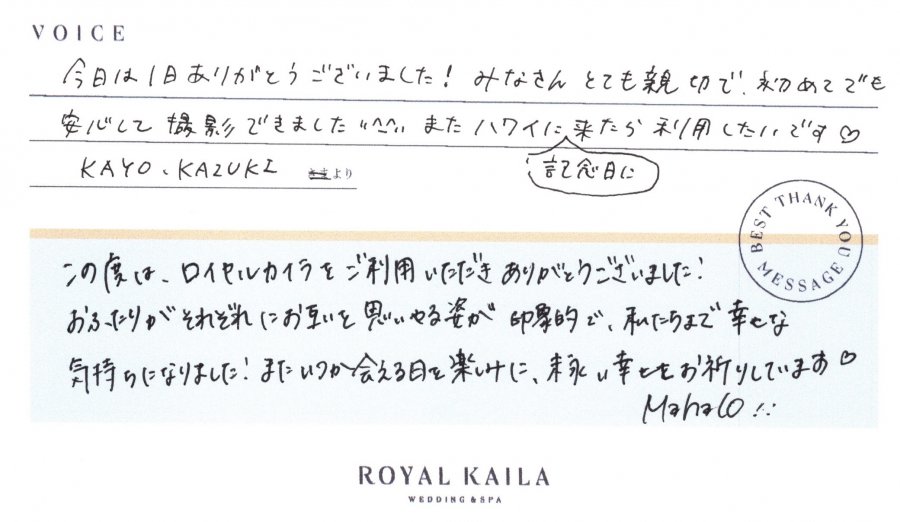 VOICE
今日は1日ありがとうございました! みなさん とても親切で、初めてでも
安心して 撮影できました"^^" また ハワイに来たら 利用したいです♡
記念日に
KAYO、KAZUKI さま より
BEST THANK YOU MESSAGE
この度は、ロイヤルカイラをご利用いただきありがとうございました!
おふたりがそれぞれにお互いを思いやる姿が 印象的で、私たちまで幸せな
気持ちになりました! またいつか会える日を楽しみに、末永い幸せをお祈りしています♡
Mahalo
ROYAL KAILA
WEDDING & SPA